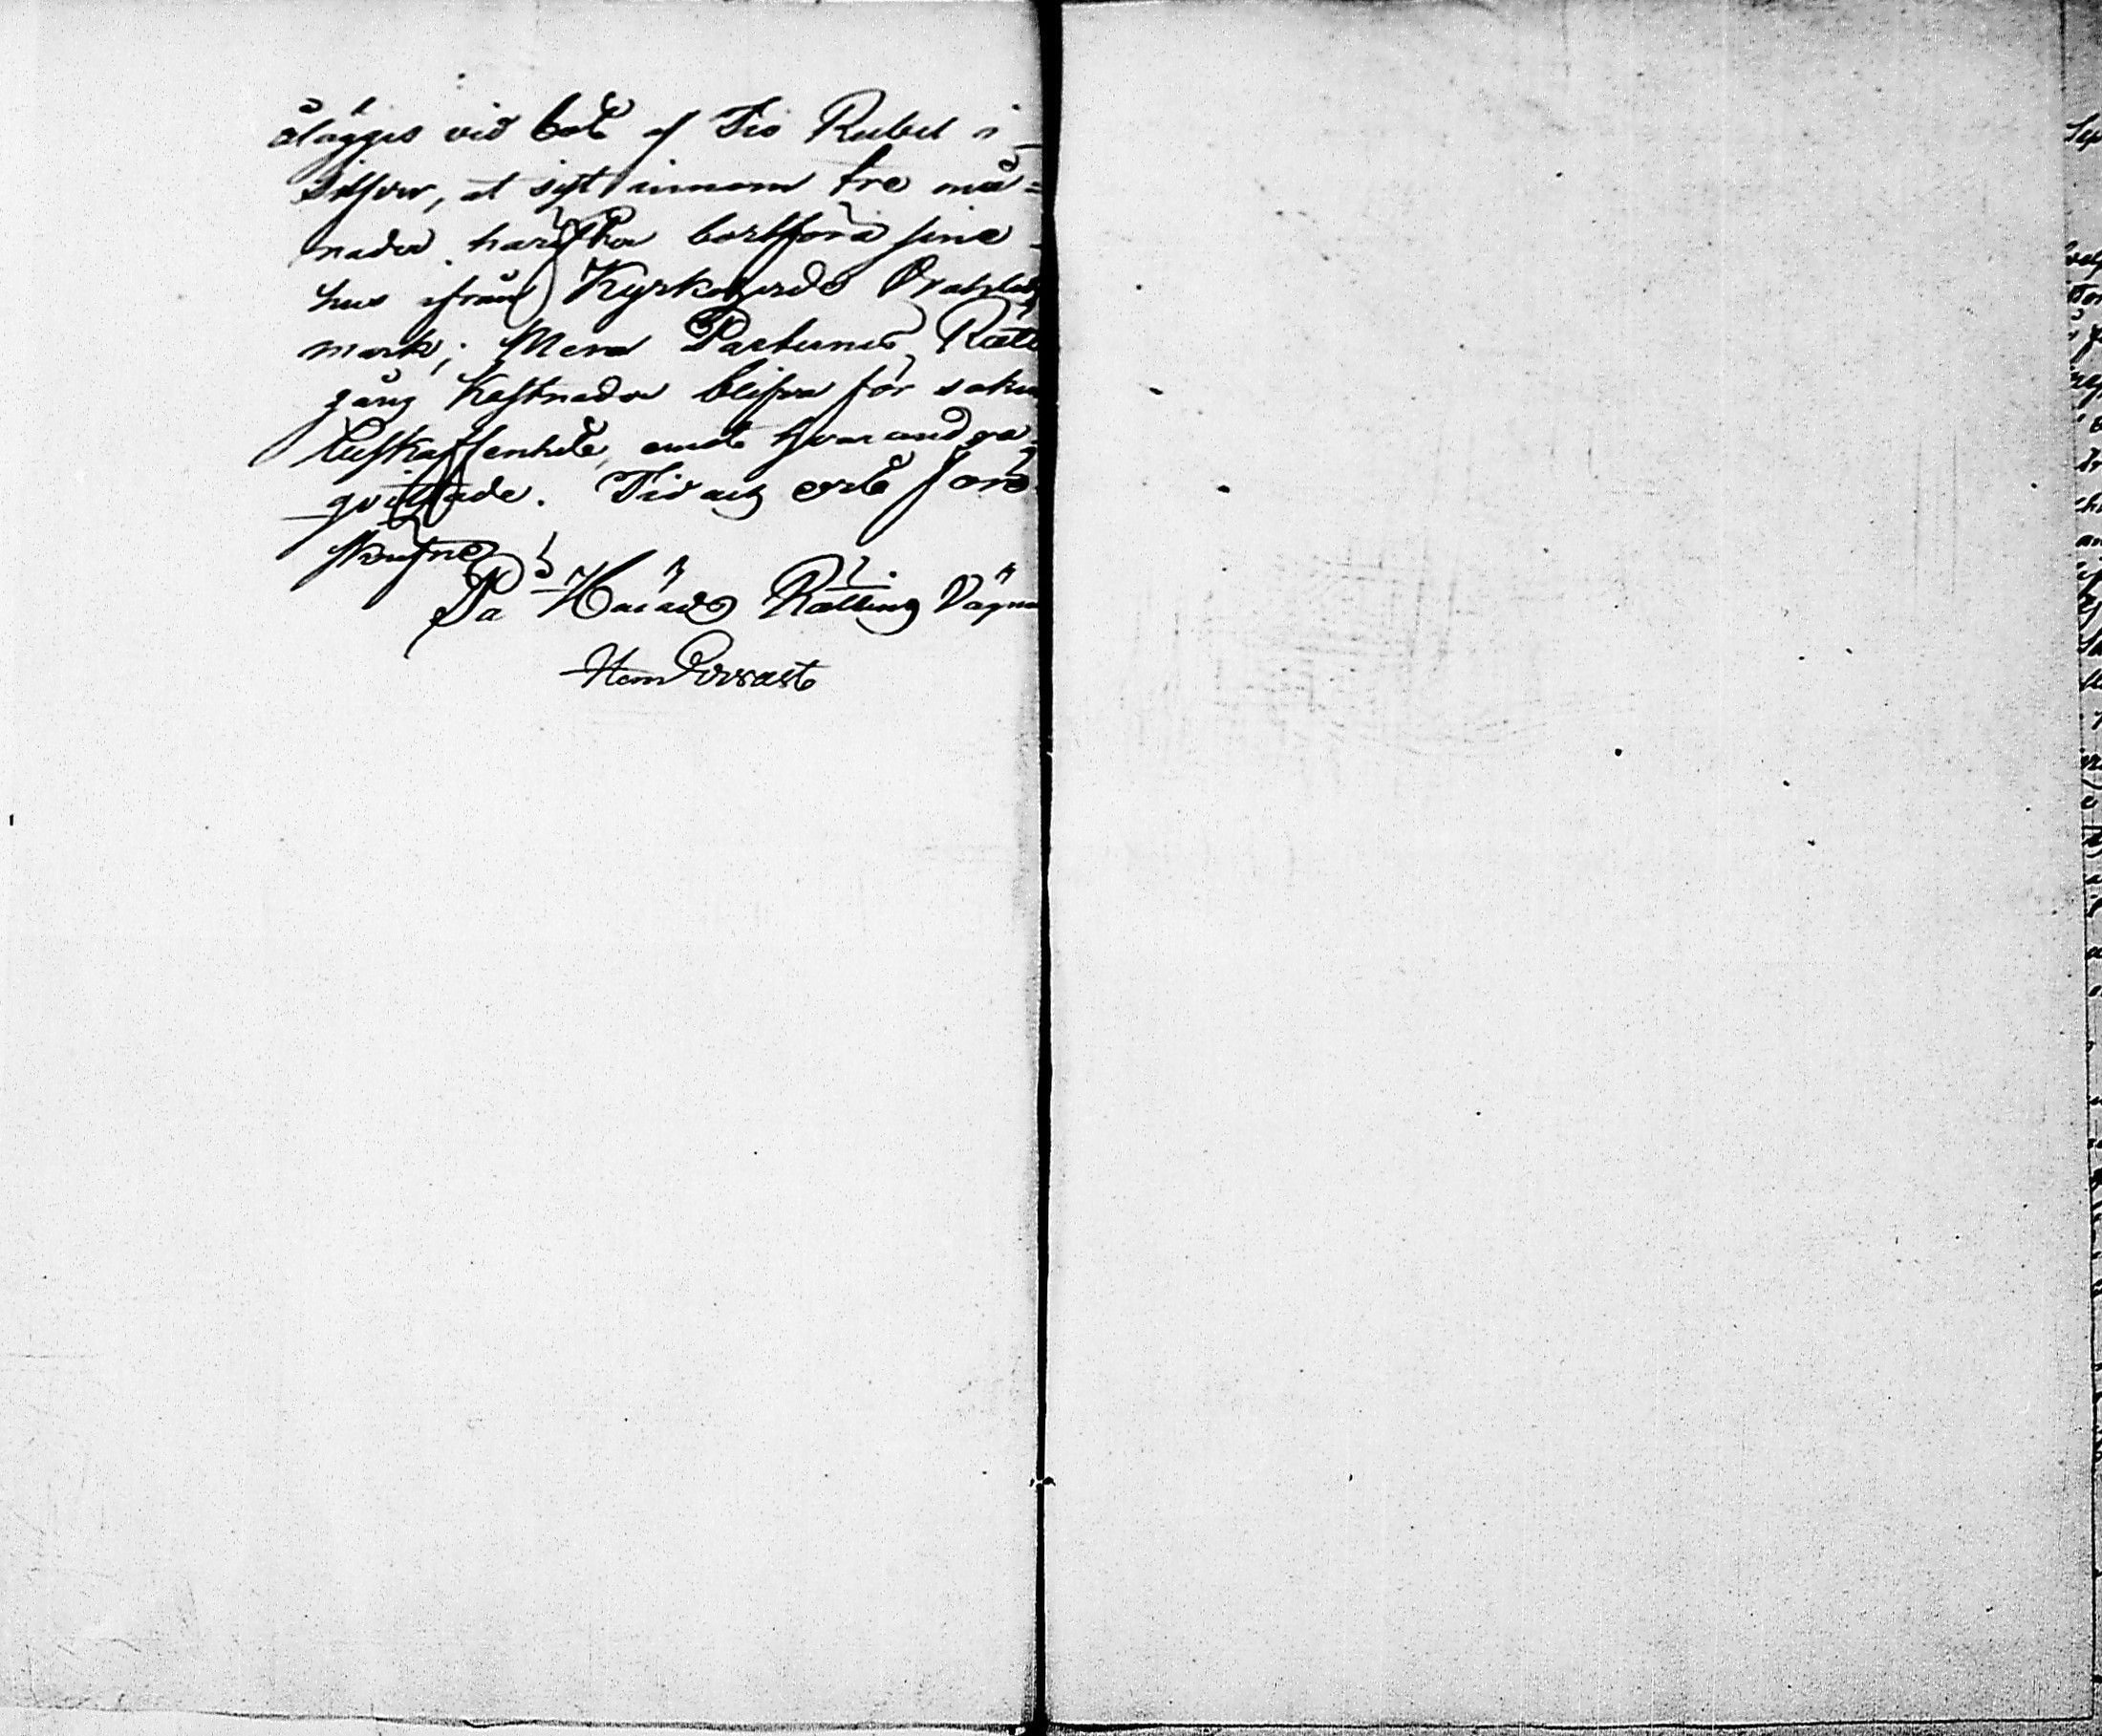 ålägges vid bot af Tio Rubel i
Silfver, at sist innom tre må=
nader härefter bortföra sine
hus ifrån Kyrkoherde
mark; Men Parternes Rätte
gång Kostnader blifva för saken
beskaffenhet emot hvarandra
qvittade. Tid och ort förr
skrefne
På Härads Rättens Vägnar